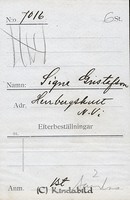 No. 7016
6 St.
Namn: Signe Gustafsson
Adr. Herrbergshult
N. Vi.
Efterbeställningar
Anm. bst
(C) Kindabild